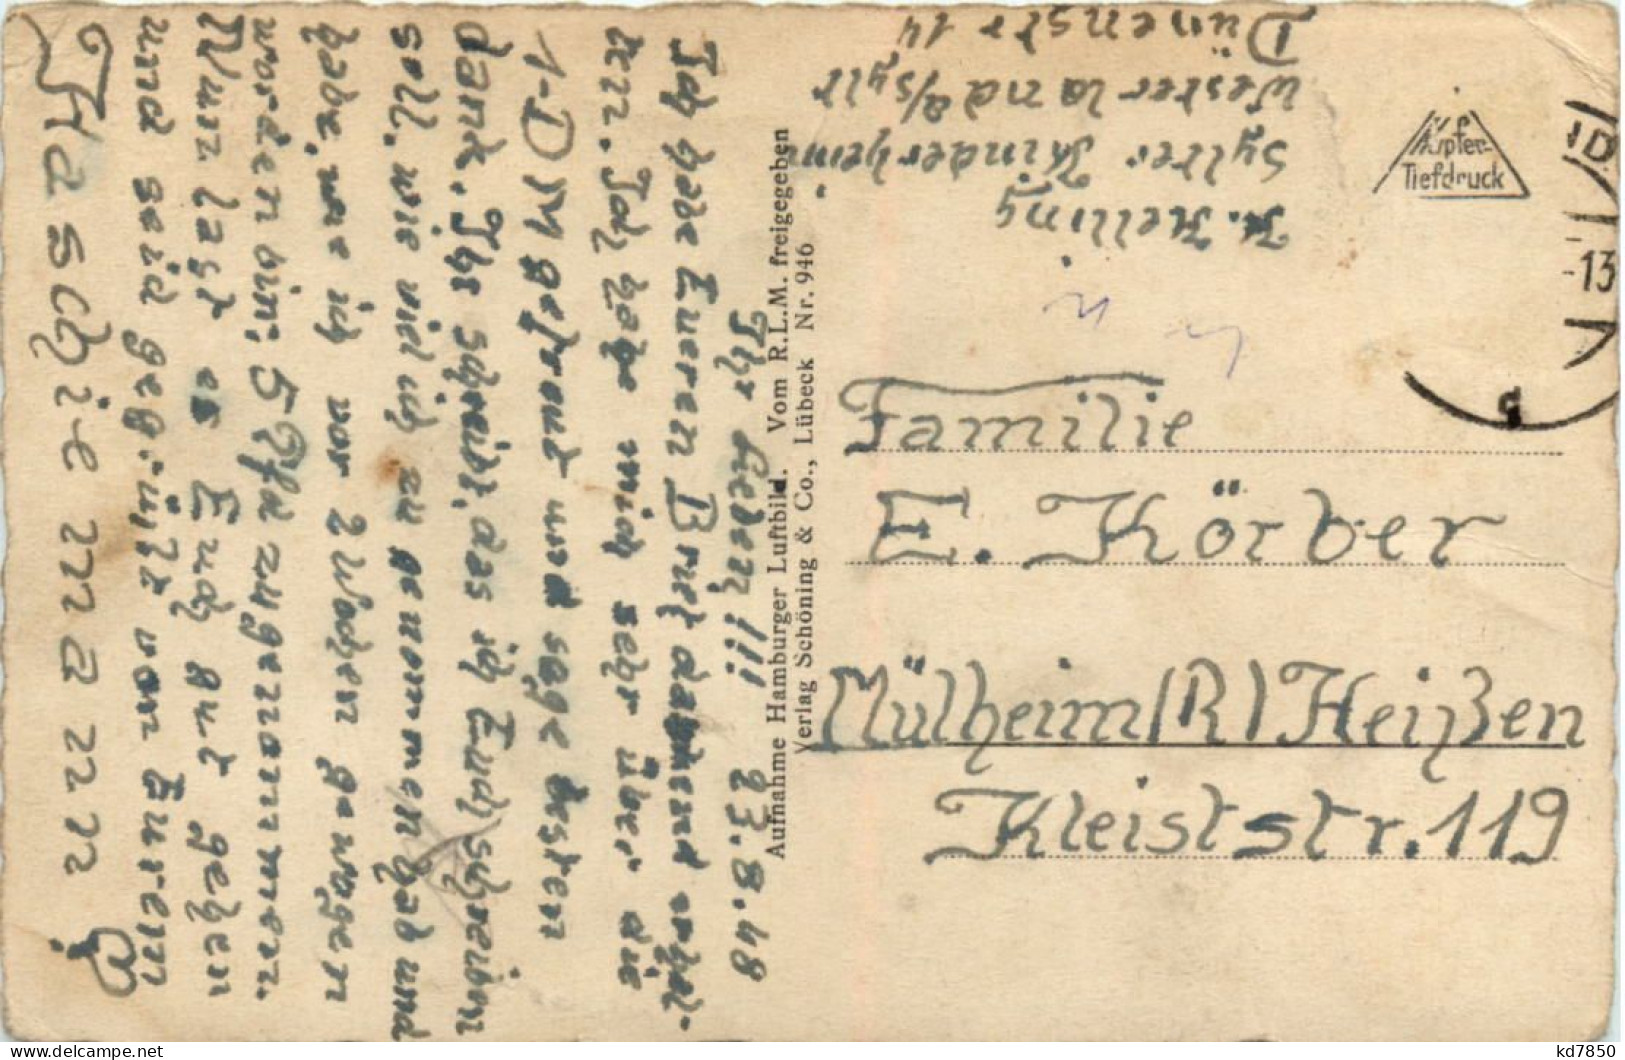 Ihr lieben!!! 23.8.48
Ich habe Eueren Brief dankend erhal-
ten. Ich habe mich sehr über die
1-DM gefreut und sage besten
dank. Ihr schreibt, das ich Euch schreiben
soll, wie viel ich zu genommen hab und
habe, wie ich vor 2 Wochen gewogen
worden bin, 5 Pfd zugenommen.
Nun lasst es Euch gut gehen
und seid gegrüßt von Eurem
Haschiemann
H. Helling
Sylter Kinderheim
Westerland a/Sylt
Dünenstr 14
Aufnahme Hamburger Luftbild. Vom R.L.M. freigegeben
Verlag Schöning & Co., Lübeck Nr. 946
Kupfer-
Tiefdruck
-13
Familie
E. Körber
Mülheim (R) Heißen
Kleiststr. 119
kd7850